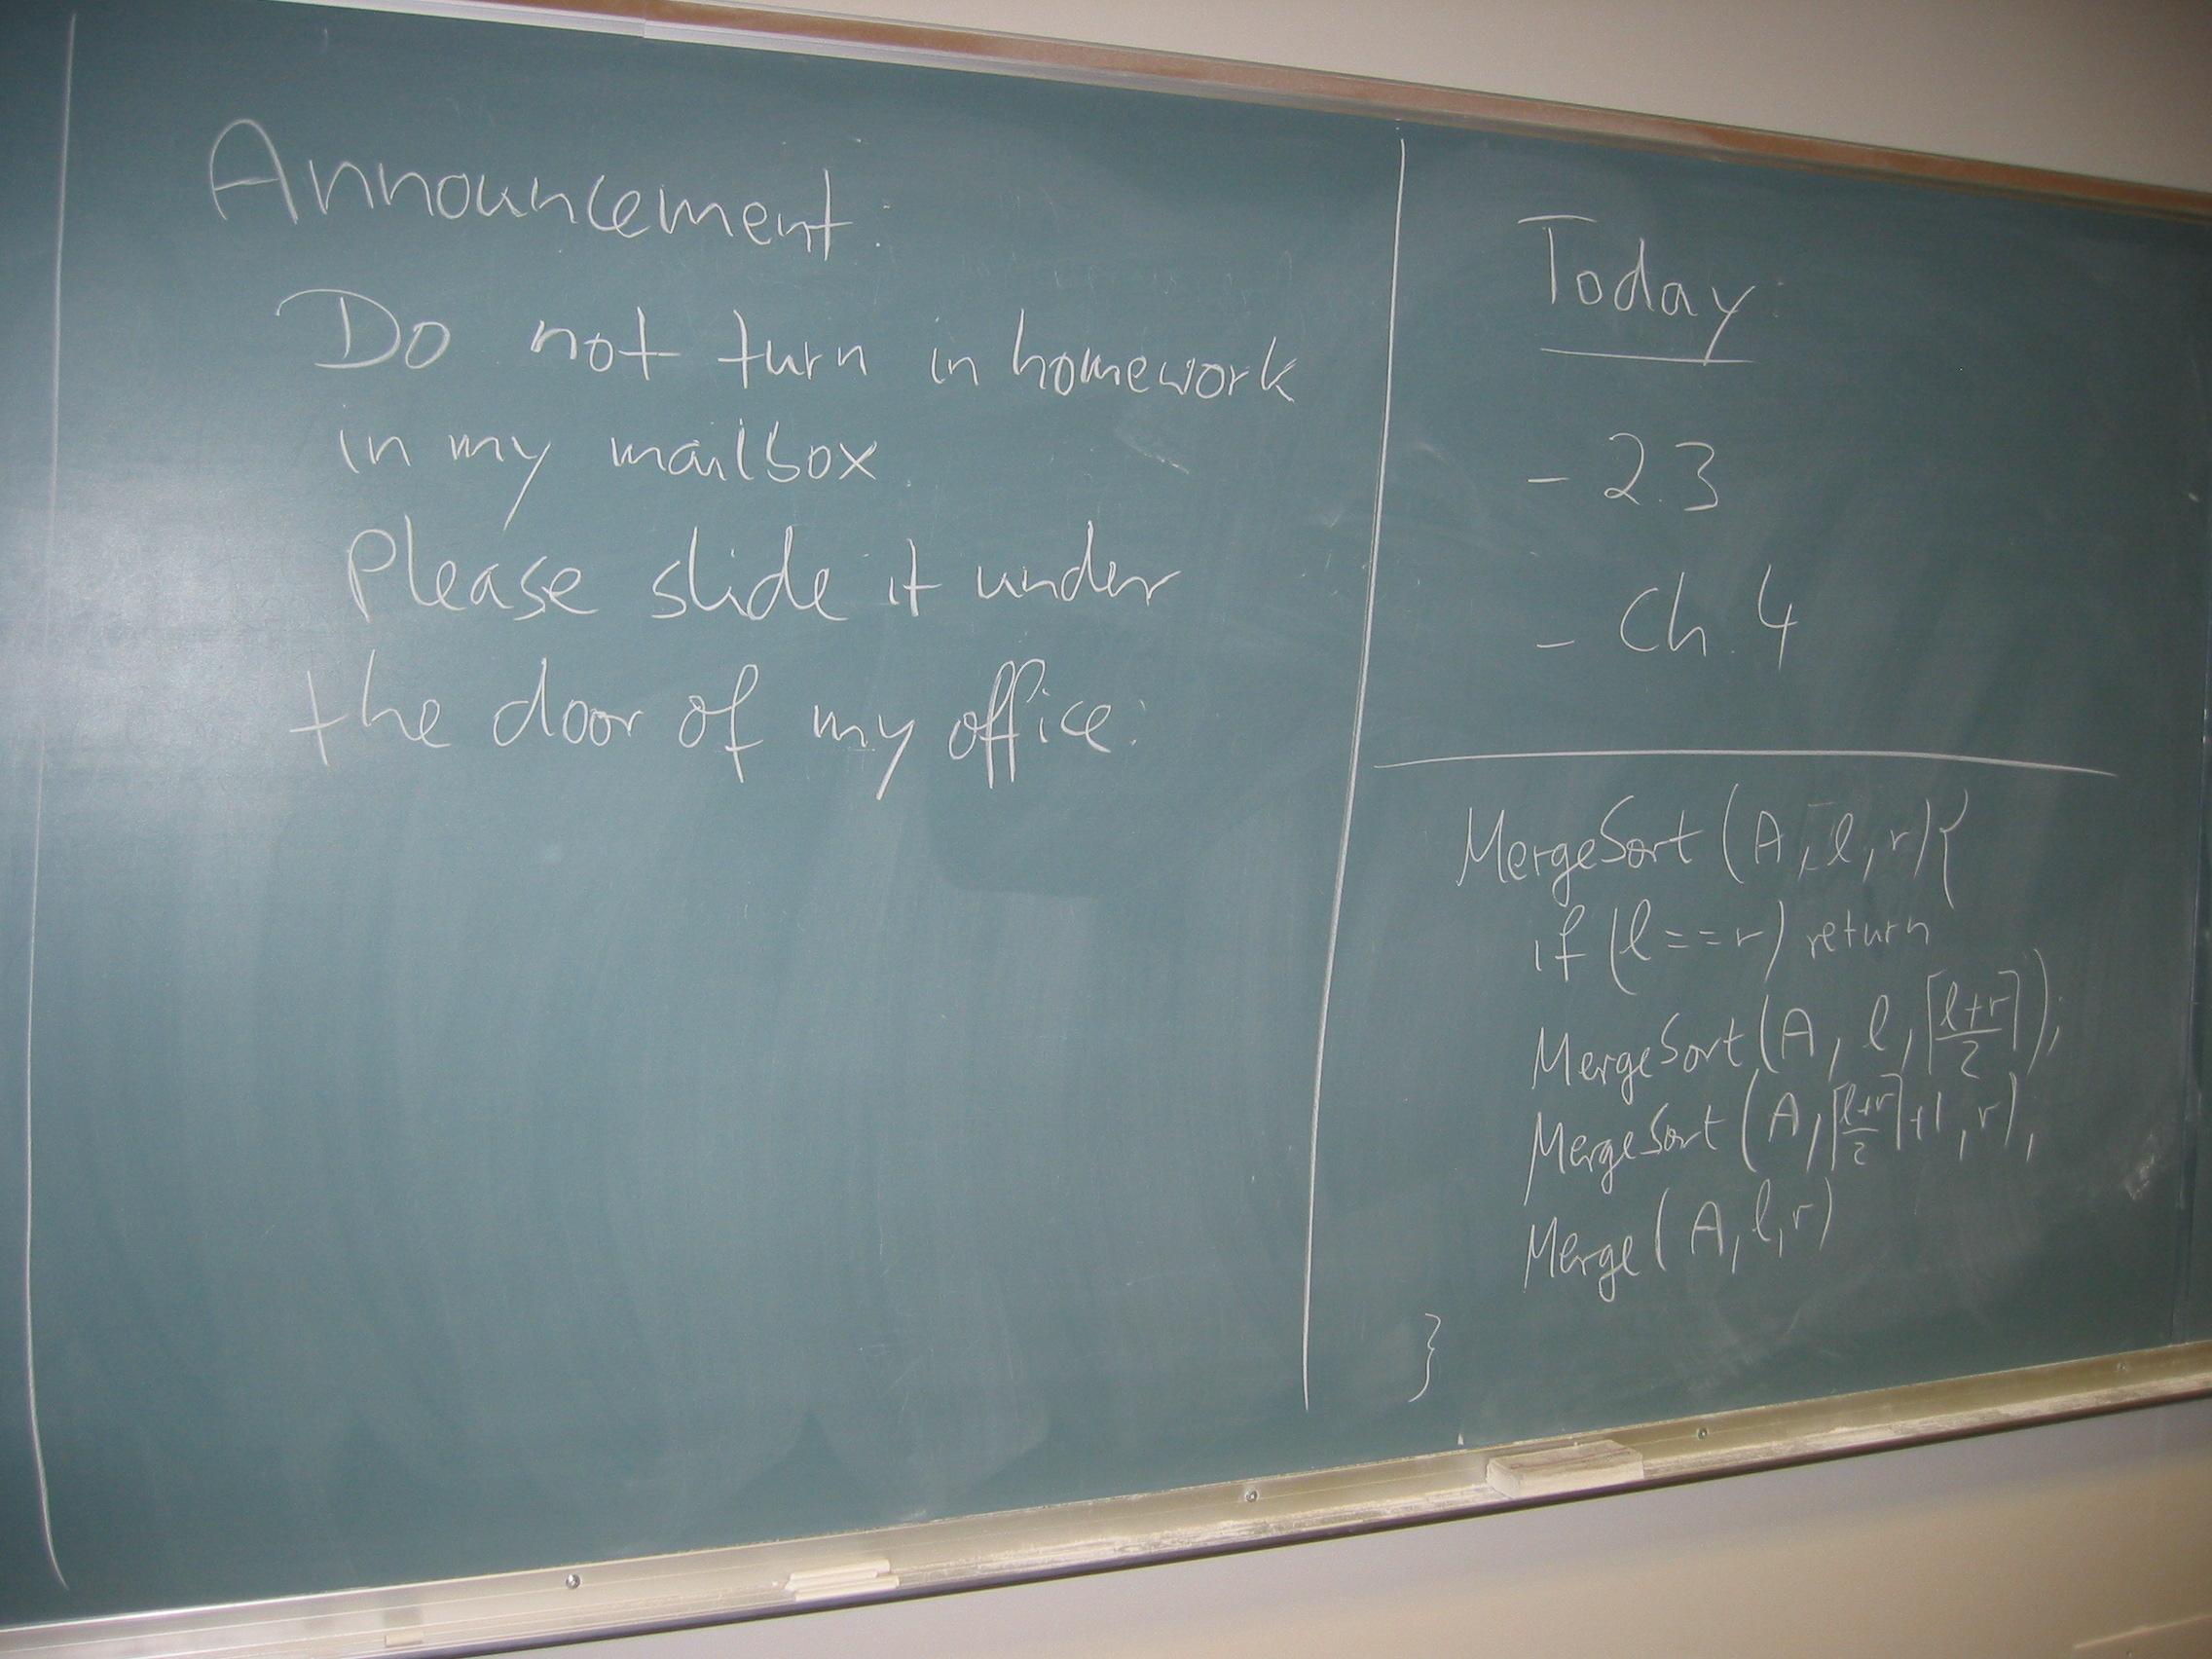 Announcement:
Do not turn in homework
in my mailbox.
Please slide it under
the door of my office.
Today:
- 2.3
- Ch. 4
MergeSort (A, l, r) {
if (l==r) return
MergeSort (A, l, ⌈l+r/2⌉);
MergeSort (A, ⌈l+r/2⌉+1, r),
Merge (A, l, r)
}